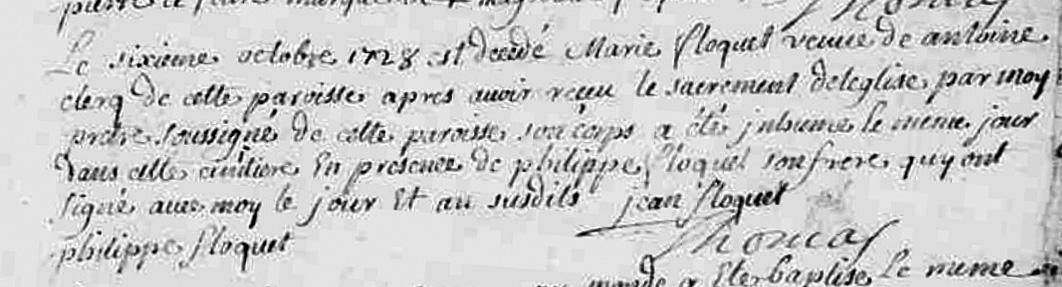 Thomas
Le sixieme octobre 1728 est decedé Marie floquet veuue de antoine
clerq de cette paroisse apres auoir receu le sacrement deleglise par moy
pretre soussigné de cette paroisse son corps a été jnhume le meme jour
dans cette cimitiere En presence de philippe floquet son frere quy ont
signé auec moy le jour Et an susdits jean floquet
philippe floquet
Thomas
a Eté baptise Le meme